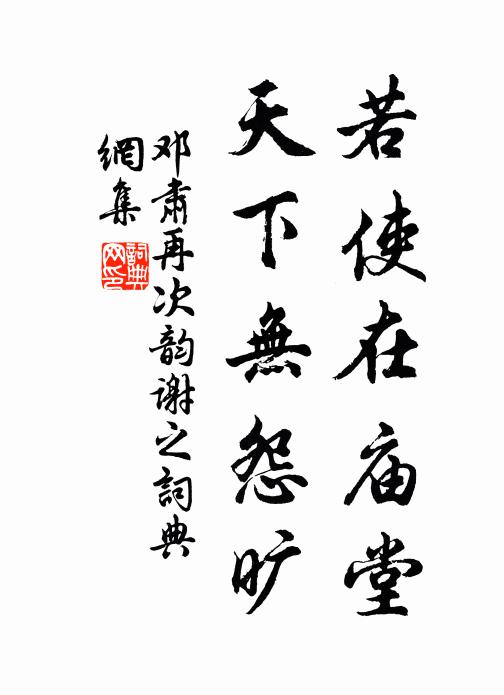 若使在庙堂
天下無怨旷
邓肃再次韵谢之詞典
網集
詞典
网印